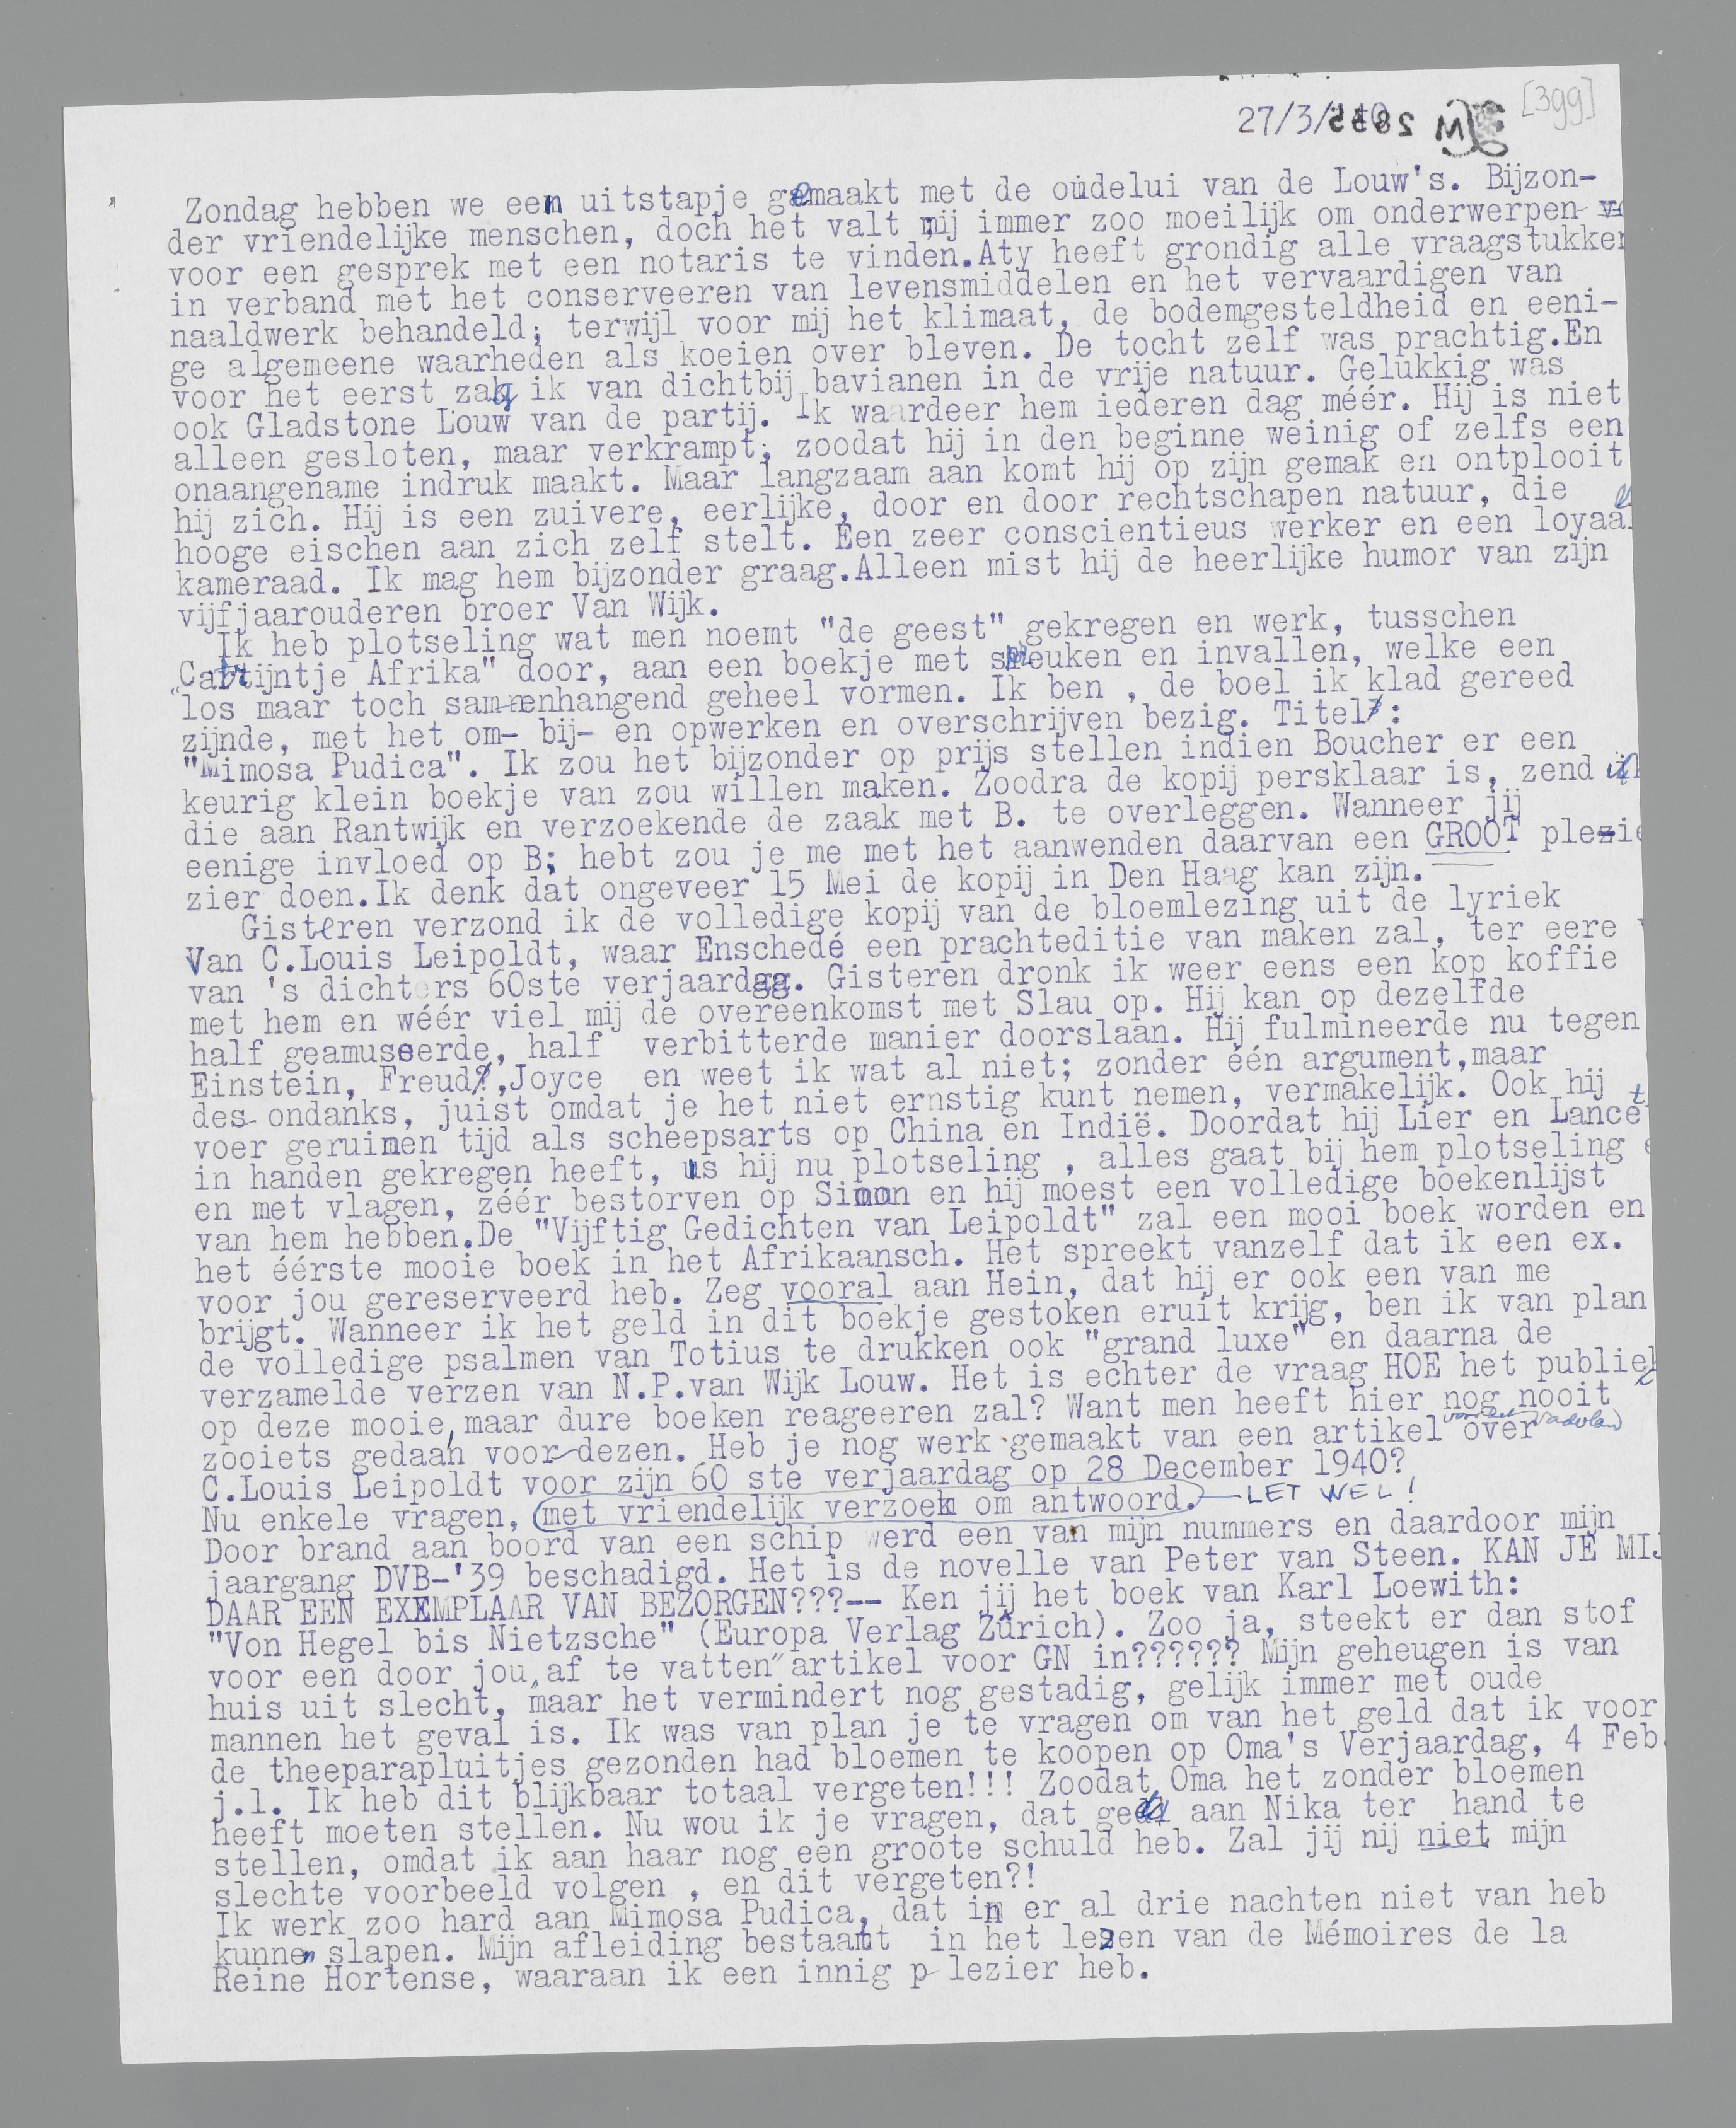 [399]
27/3/'40
Zondag hebben we een uitstapje gemaakt met de oudelui van de Louw's. Bijzon-
der vriendelijke menschen, doch het valt mij immer zoo moeilijk om onderwerpen
voor een gesprek met een notaris te vinden.Aty heeft grondig alle vraagstukken
in verband met het conserveeren van levensmiddelen en het vervaardigen van
naaldwerk behandeld; terwijl voor mij het klimaat, de bodemgesteldheid en eeni-
ge algemeene waarheden als koeien over bleven. De tocht zelf was prachtig.En
voor het eerst zag ik van dichtbij bavianen in de vrije natuur. Gelukkig was
ook Gladstone Louw van de partij. Ik waardeer hem iederen dag méér. Hij is niet
alleen gesloten, maar verkrampt; zoodat hij in den beginne weinig of zelfs een
onaangename indruk maakt. Maar langzaam aan komt hij op zijn gemak en ontplooit
hij zich. Hij is een zuivere, eerlijke, door en door rechtschapen natuur, die
hooge eischen aan zich zelf stelt. Een zeer conscientieus werker en een loyaal
kameraad. Ik mag hem bijzonder graag.Alleen mist hij de heerlijke humor van zijn
vijfjaarouderen broer Van Wijk.
Ik heb plotseling wat men noemt "de geest" gekregen en werk, tusschen
"Catrijntje Afrika" door, aan een boekje met spreuken en invallen, welke een
los maar toch samenhangend geheel vormen. Ik ben , de boel ik klad gereed
zijnde, met het om- bij- en opwerken en overschrijven bezig. Titel :
"Mimosa Pudica". Ik zou het bijzonder op prijs stellen indien Boucher er een
keurig klein boekje van zou willen maken. Zoodra de kopij persklaar is, zend ik
die aan Rantwijk en verzoekende de zaak met B. te overleggen. Wanneer jij
eenige invloed op B; hebt zou je me met het aanwenden daarvan een GROOT plezie
zier doen.Ik denk dat ongeveer 15 Mei de kopij in Den Haag kan zijn.
Gisteren verzond ik de volledige kopij van de bloemlezing uit de lyriek
Van C.Louis Leipoldt, waar Enschedé een prachteditie van maken zal, ter eere v
van 's dichters 60ste verjaardag. Gisteren dronk ik weer eens een kop koffie
met hem en wéér viel mij de overeenkomst met Slau op. Hij kan op dezelfde
half geamuseerde, half verbitterde manier doorslaan. Hij fulmineerde nu tegen
Einstein, Freud,Joyce en weet ik wat al niet; zonder één argument,maar
des ondanks, juist omdat je het niet ernstig kunt nemen, vermakelijk. Ook hij
voer geruimen tijd als scheepsarts op China en Indië. Doordat hij Lier en Lancet
in handen gekregen heeft, is hij nu plotseling , alles gaat bij hem plotseling e
en met vlagen, zéér bestorven op Simon en hij moest een volledige boekenlijst
van hem hebben.De "Vijftig Gedichten van Leipoldt" zal een mooi boek worden en
het éérste mooie boek in het Afrikaansch. Het spreekt vanzelf dat ik een ex.
voor jou gereserveerd heb. Zeg vooral aan Hein, dat hij er ook een van me
brijgt. Wanneer ik het geld in dit boekje gestoken eruit krijg, ben ik van plan
de volledige psalmen van Totius te drukken ook "grand luxe" en daarna de
verzamelde verzen van N.P.van Wijk Louw. Het is echter de vraag HOE het publiek
op deze mooie,maar dure boeken reageeren zal? Want men heeft hier nog nooit
zooiets gedaan voor dezen. Heb je nog werk gemaakt van een artikel over
voor het Vaderland
C.Louis Leipoldt voor zijn 60 ste verjaardag op 28 December 1940?
Nu enkele vragen, met vriendelijk verzoek om antwoord. LET WEL!
Door brand aan boord van een schip werd een van mijn nummers en daardoor mijn
jaargang DVB-'39 beschadigd. Het is de novelle van Peter van Steen. KAN JE MIJ
DAAR EEN EXEMPLAAR VAN BEZORGEN???-- Ken jij het boek van Karl Loewith:
"Von Hegel bis Nietzsche" (Europa Verlag Zürich). Zoo ja, steekt er dan stof
voor een door jou "af te vatten" artikel voor GN in?????? Mijn geheugen is van
huis uit slecht, maar het vermindert nog gestadig, gelijk immer met oude
mannen het geval is. Ik was van plan je te vragen om van het geld dat ik voor
de theeparapluitjes gezonden had bloemen te koopen op Oma's Verjaardag, 4 Feb.
j.l. Ik heb dit blijkbaar totaal vergeten!!! Zoodat Oma het zonder bloemen
heeft moeten stellen. Nu wou ik je vragen, dat geld aan Nika ter hand te
stellen, omdat ik aan haar nog een groote schuld heb. Zal jij nij niet mijn
slechte voorbeeld volgen , en dit vergeten?!
Ik werk zoo hard aan Mimosa Pudica, dat in er al drie nachten niet van heb
kunnen slapen. Mijn afleiding bestaat in het lezen van de Mémoires de la
Reine Hortense, waaraan ik een innig p lezier heb.